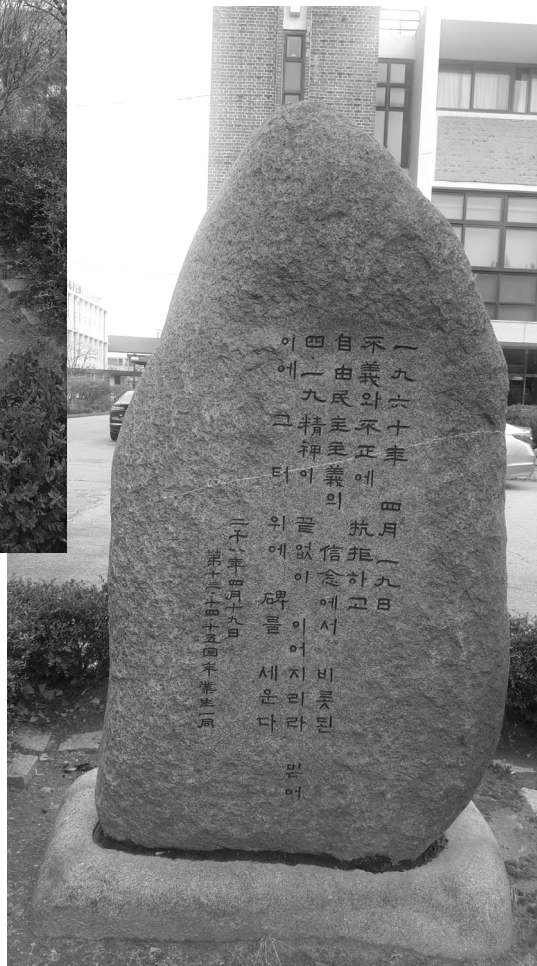 一九六十年 四月 一九日
不義와 不正에 抗拒하고
自由民主主義의 信念에서 비롯된
四一九精神이 끝없이 이어지리라 믿어
이에 그 터 위에 碑를 세운다
二千八年 四月十九日
第十三·十四·十五回 卒業生一同